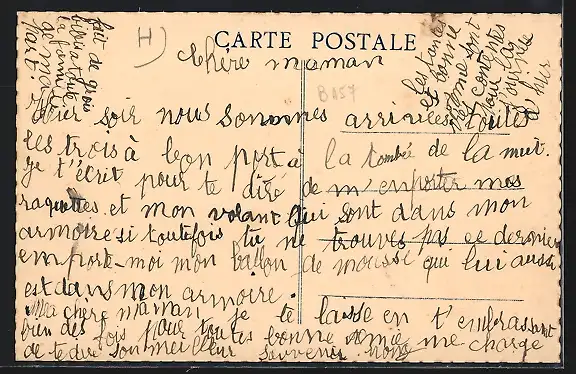 H)
CARTE POSTALE
B 157
Chère maman
Hier soir nous sommes arrivées toutes
les trois à bon port à la tombé de la nuit.
Je t'écrit pour te dire de m'emporter mes
raquettes et mon volant qui sont dans mon
armoire si toutefois tu ne trouves pas ce dernier
emporte-moi mon ballon de mousse qui lui aussi
est dans mon armoire.
Ma chère maman je te laisse en t'embrassant
bien des fois pour toutes bonne amie me charge
de te dire son meilleur souvenir
fait de gros
bises à toute
la famille
de ma
part.
les tantes
et bonne
amie sont
contentes
la
journée
d'hier